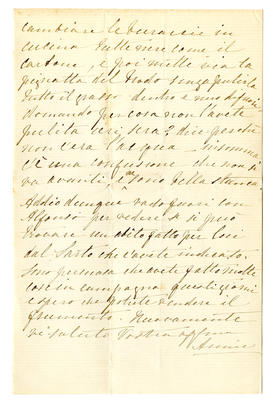 cambiare le buraccie in
cucina tutte nere come il
carbone, e poi mette via la
pignatta del brodo senza pulirla
tutto il grasso dentro e
domando per cosa non l'avete
pulita ieri sera? dice perchè
non c'era l'acqua insomma
c'è una confusione che non si
va avanti, e sono bella stanca
Addio dunque vado fuori con
Alfonso per vedere se si può
trovare un abito fatto per lui
dal Sarto che avete indicato.
Sono persuasa che avete fatto molte
cose in campagna questi giorni
e spero che potrete vendere il
frumento. Nuovamente
vi saluto Vostra affma
Annie